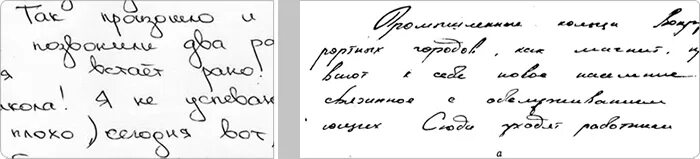 Так произошло и
позвонили два ро
я встаёт рано!
кола! Я не успеваю
плохо) сегодня вот,
Промышленные кольца Вокру
рортных городов, как магнит, п
вают к себе новое население
связанное с обслуживанием
ющих Сюда уходят работники
а